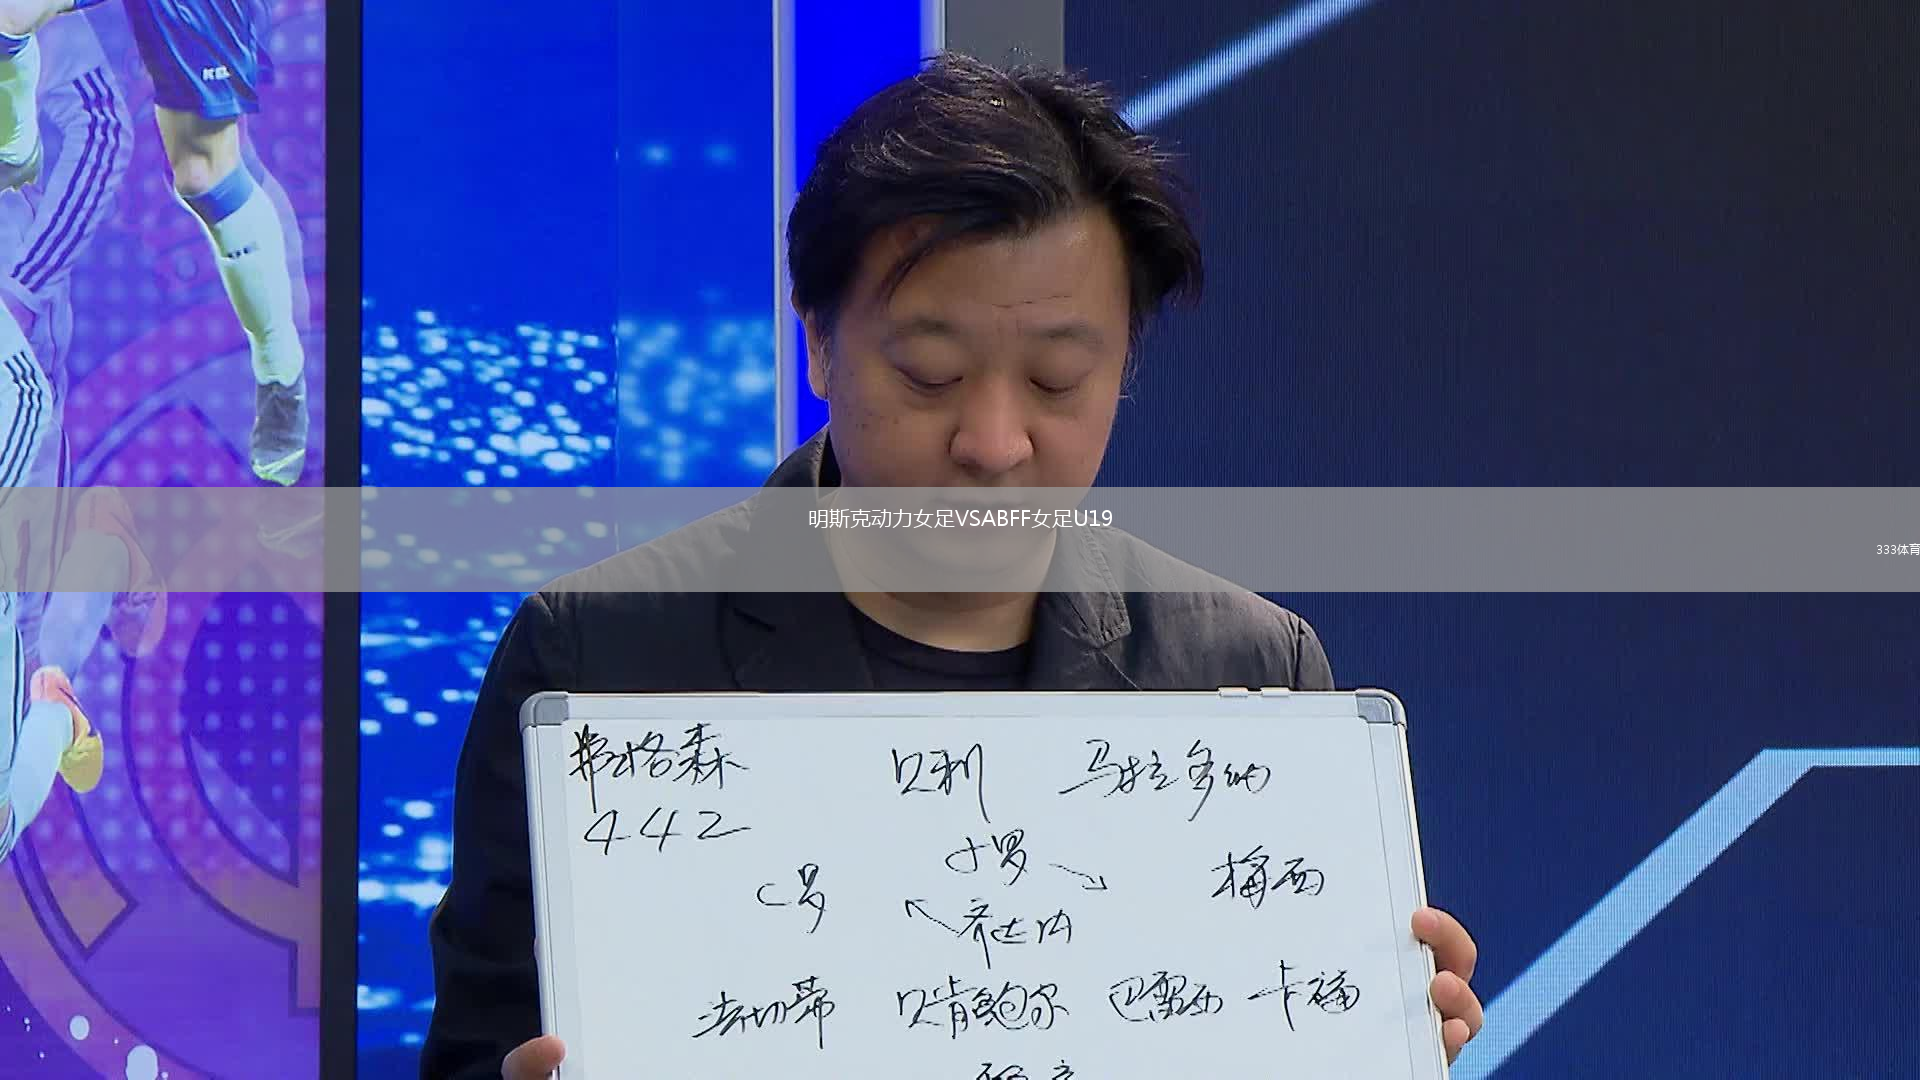 KEL
明斯克动力女足VSABFF女足U19
333体育
弗格森 贝利 马拉多纳
442
小罗
C罗 梅西
齐达内
法切蒂 贝肯鲍尔 巴雷西 卡福